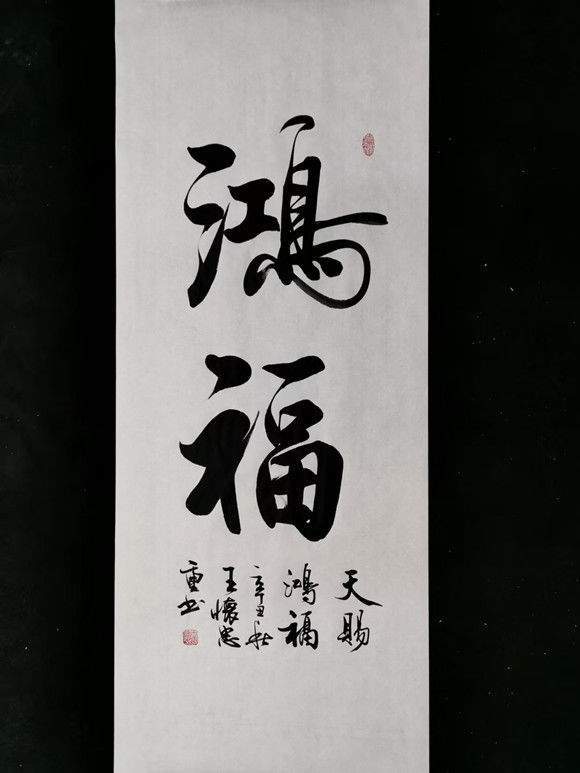 鴻
福
天賜
鴻福
辛丑秋
王懷忠
重書